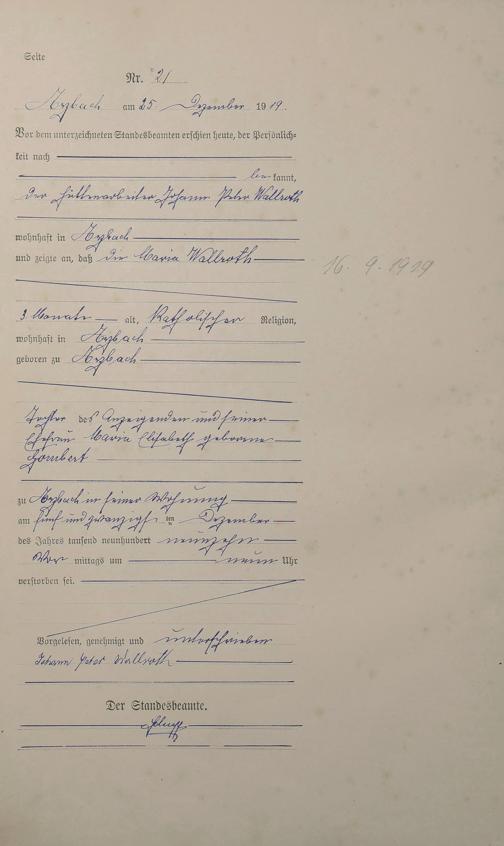 Seite
Nr. 21
Arzbach am 25. Dezember 1919.
Vor dem unterzeichneten Standesbeamten erschien heute, der Persönlich-
keit nach
bekannt,
der Hüttenarbeiter Johann Peter Wallroth
wohnhaft in Arzbach
und zeigte an, daß die Maria Wallroth
16. 9. 1919
3 Monate alt, Katholischer Religion,
wohnhaft in Arzbach
geboren zu Arzbach
Tochter des Anzeigenden und seiner
Ehefrau Maria Elisabeth geborene
zu Arzbach in seiner Wohnung
am fünf und zwanzigsten Dezember
des Jahres tausend neunhundert neunzehn
Vor mittags um neun Uhr
verstorben sei.
Vorgelesen, genehmigt und unterschrieben
Johann Peter Wallroth
Der Standesbeamte.